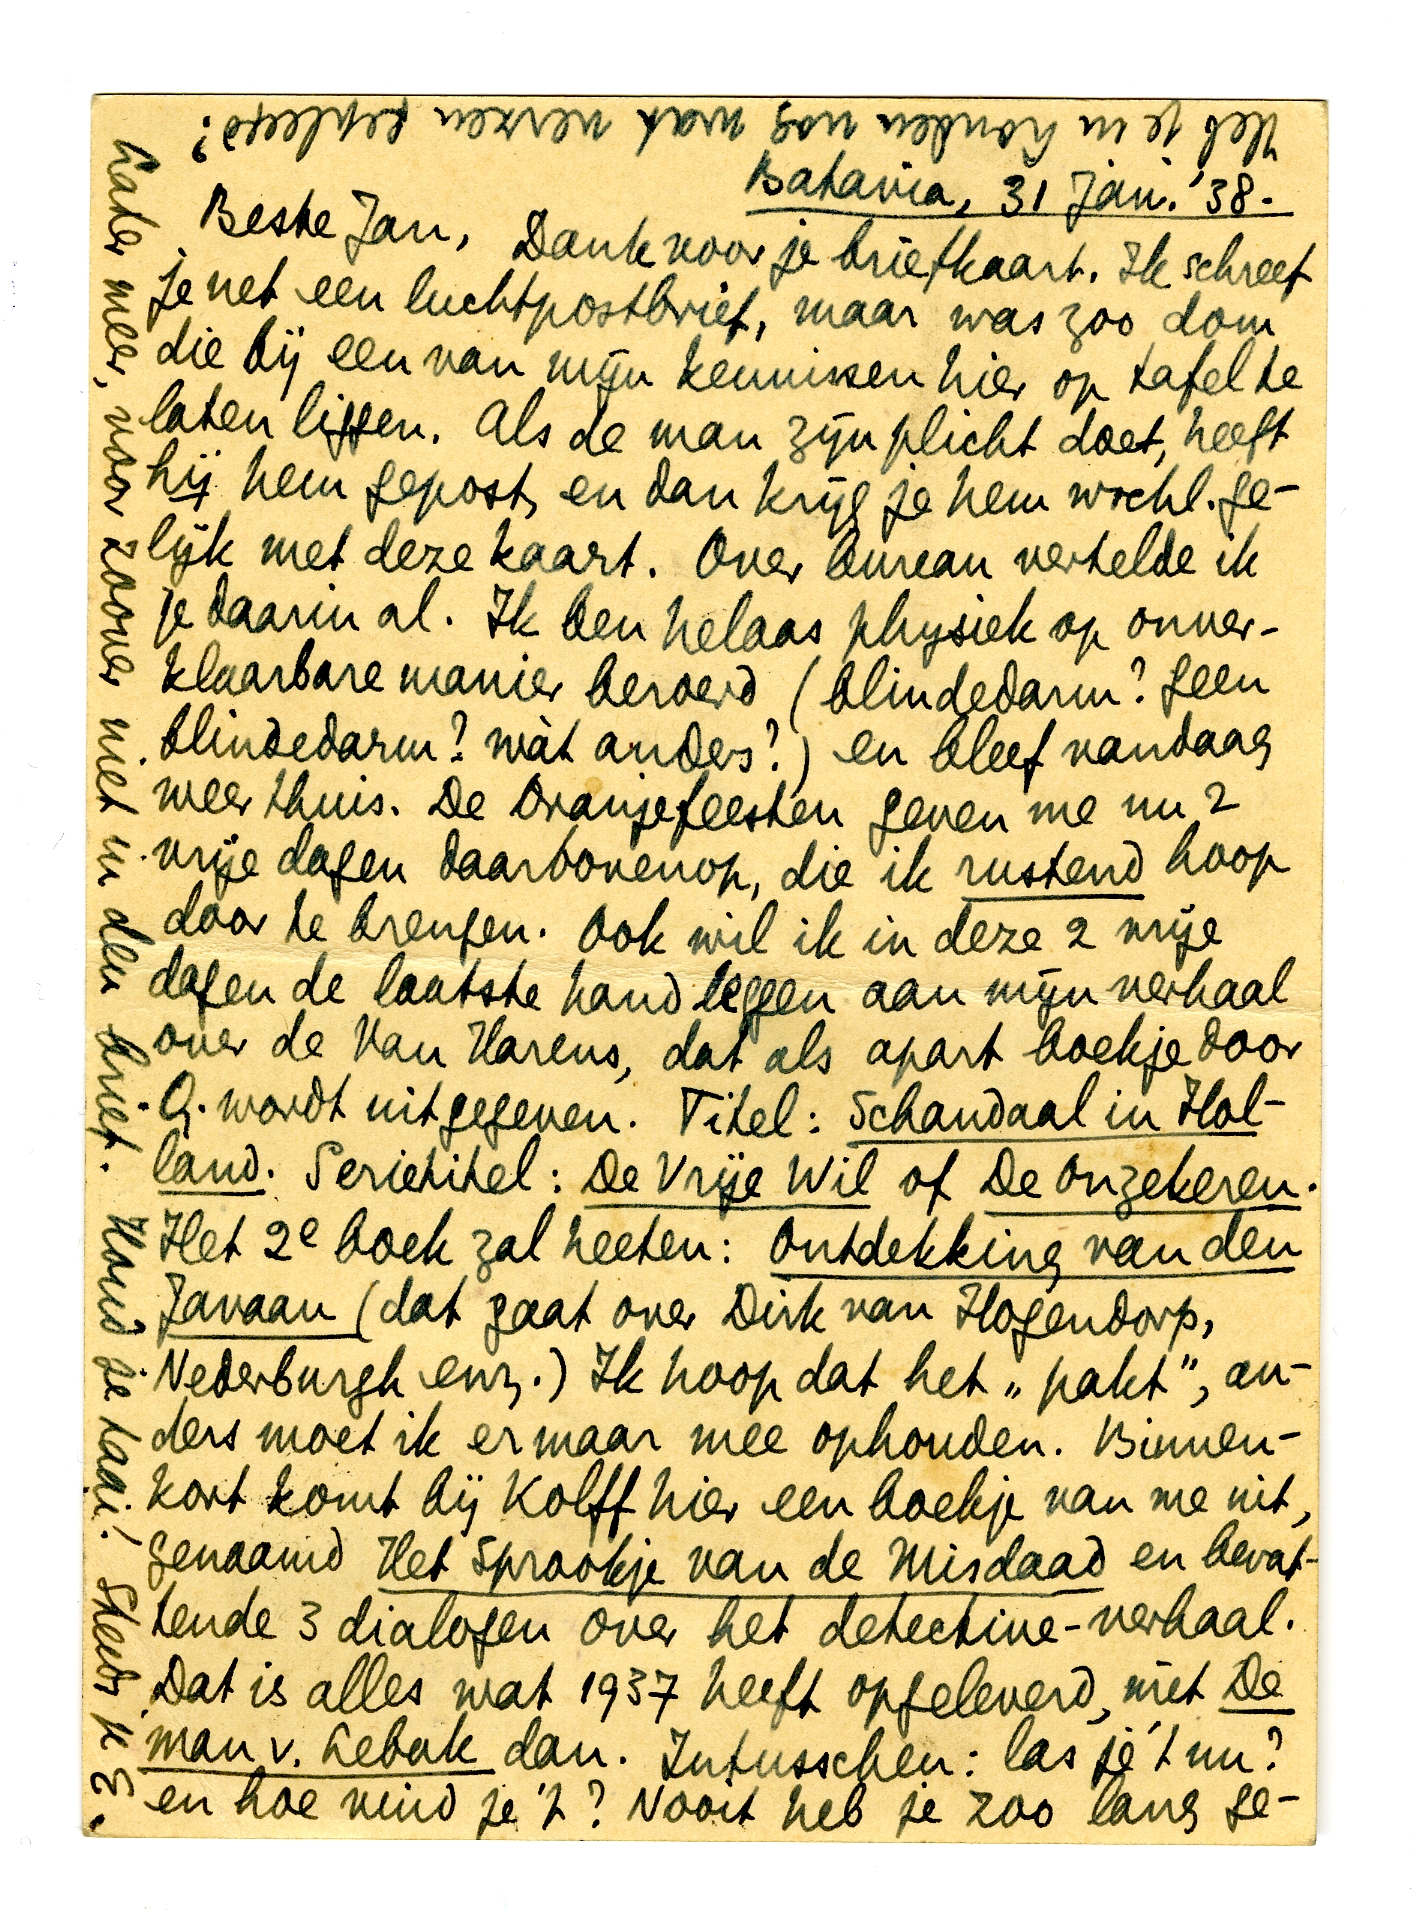 Heb je in Londen nog wat verzen gepleegd?
Batavia, 31 Jan. '38.
Beste Jan, Dank voor je briefkaart. Ik schreef
je net een luchtpostbrief, maar was zoo dom
die bij een van mijn kennissen hier op tafel te
laten liggen. Als de man zijn plicht doet, heeft
hij hem gepost, en dan krijg je hem wschl. ge-
lijk met deze kaart. Over bureau vertelde ik
je daarin al. Ik ben helaas physiek op onver-
klaarbare manier beroerd (blindedarm? geen
blindedarm? wàt anders?) en bleef vandaag
weer thuis. De Oranjefeesten geven me nu 2
vrije dagen daarbovenop, die ik rustend hoop
door te brengen. Ook wil ik in deze 2 vrije
dagen de laatste hand leggen aan mijn verhaal
over de Van Harens, dat als apart boekje door
Q. wordt uitgegeven. Titel: Schandaal in Hol-
land. Serietitel: De Vrije Wil of De Onzekeren.
Het 2e boek zal heeten: Ontdekking van den
Javaan (dat gaat over Dirk van Hogendorp,
Nederburgh enz.) Ik hoop dat het „pakt", an-
ders moet ik er maar mee ophouden. Binnen-
kort komt bij Kolff hier een boekje van me uit,
genaamd Het Sprookje van de Misdaad en bevat-
tende 3 dialogen over het detective-verhaal.
Dat is alles wat 1937 heeft opgeleverd, mèt De
man v. Lebak dan. Intusschen: las je 't nu?
en hoe vind je 't? Nooit heb je zoo lang ge-
Later meer, voor zoover niet in den brief. Houd je taai! Steeds je E.